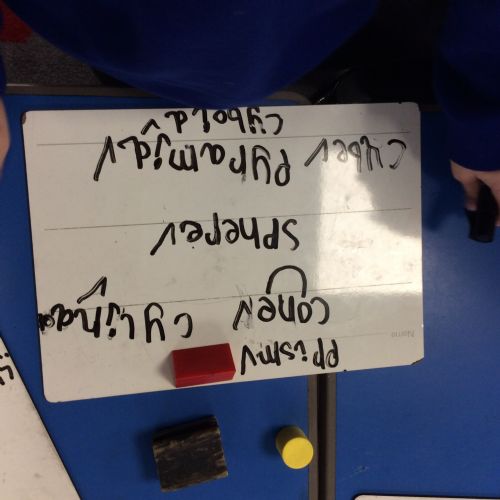 Name
Prism ✓
cone ✓ cylinder ✓
sphere ✓
cybe ✓ pyramid ✓
cyboid ✓